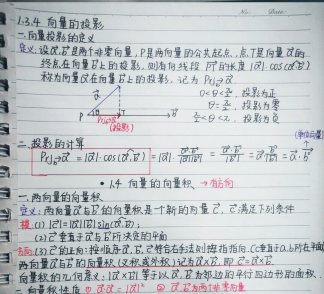 No. Date.
1.3.4 向量的投影
一.向量投影的定义
定义:设a,b是两个非零向量,P是两向量的公共起点,点T是向量a的
终点在向量b上的投影,则有向线段PT的长度|a|·cos(a^b)
称为向量a在向量b上的投影,记为Prj_b a
0<θ<π/2,投影为正
θ=π/2,投影为零
π/2<θ<π,投影为负
a
P θ T b
Prj_b a
(投影)
(单位向量)
二.投影的计算
Prj_b a=|a|·cos(a^b)=|a|·(a·b)/(|a||b|)=(a·b)/|b|=a·b/|b|=a·b°
•1.4 向量的向量积 →有方向
一.两向量的向量积
定义:两向量a与b的向量积是一个新的向量c,c满足下列条件
模:(1)|c|=|a||b|sin(a^b);
(2)c垂直于a与b所决定的平面
方向:(3)c的正向:按顺序a,b,c符合右手法则 (c垂直于a.b所在平面)
两向量a与b的向量积(又称或外积)记为a×b,即c=a×b
向量积的几何意义:|a×b|等于以a,b为邻边的平行四边形的面积.
二.向量积性质